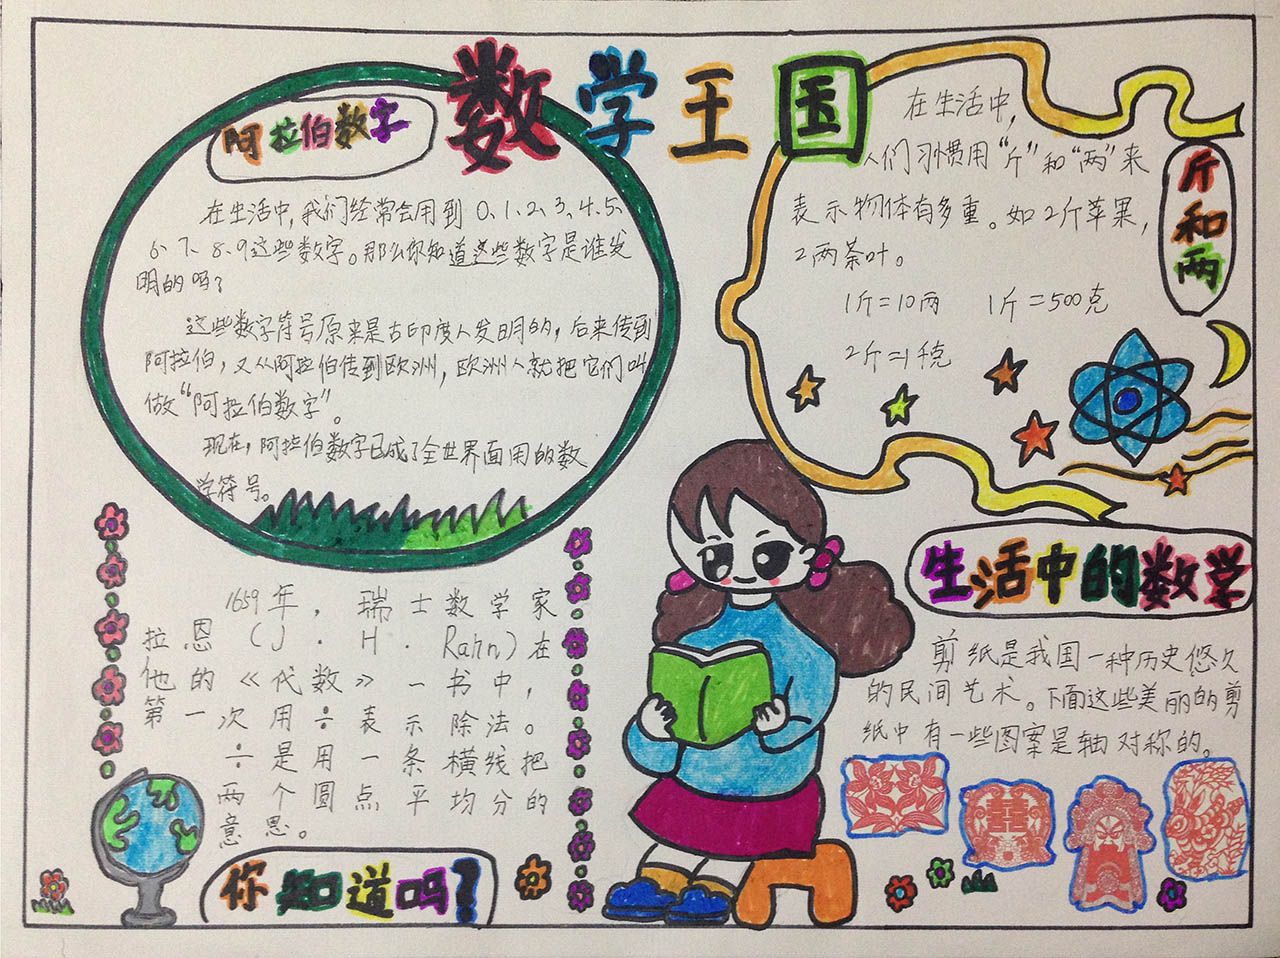 数学王国
阿拉伯数字
在生活中,我们经常会用到0、1、2、3、4、5、
6、7、8、9这些数字。那么你知道这些数字是谁发
明的吗?
这些数字符号原来是古印度人发明的,后来传到
阿拉伯,又从阿拉伯传到欧洲,欧洲人就把它们叫
做“阿拉伯数字”。
现在,阿拉伯数字已成了全世界面用的数
学符号。
斤和两
在生活中,
人们习惯用“斤”和“两”来
表示物体有多重。如2斤苹果,
2两茶叶。
1斤=10两 1斤=500克
2斤=1千克
1659年,瑞士数学家
拉恩(J.H.Rahn)在
他的《代数》一书中,
第一次用÷表示除法。
÷是用一条横线把
两个圆点平均分的
意思。
你知道吗?
生活中的数学
剪纸是我国一种历史悠久
的民间艺术。下面这些美丽的剪
纸中有一些图案是轴对称的。